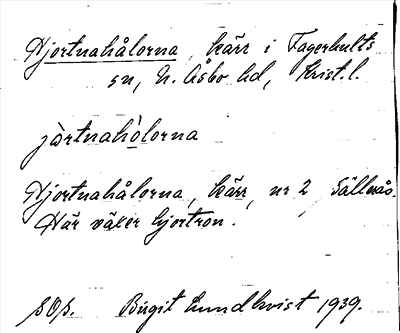 Hjortnahålorna, kärr i Fagerhults
sn, N. Åsbo hd, Krist. l.
jo̊rtnahȯ̀lorna
Hjortnahålorna, kärr, nr 2 Sällerås.
Här växer hjortron.
SOA. Birgit Lundkvist 1939.